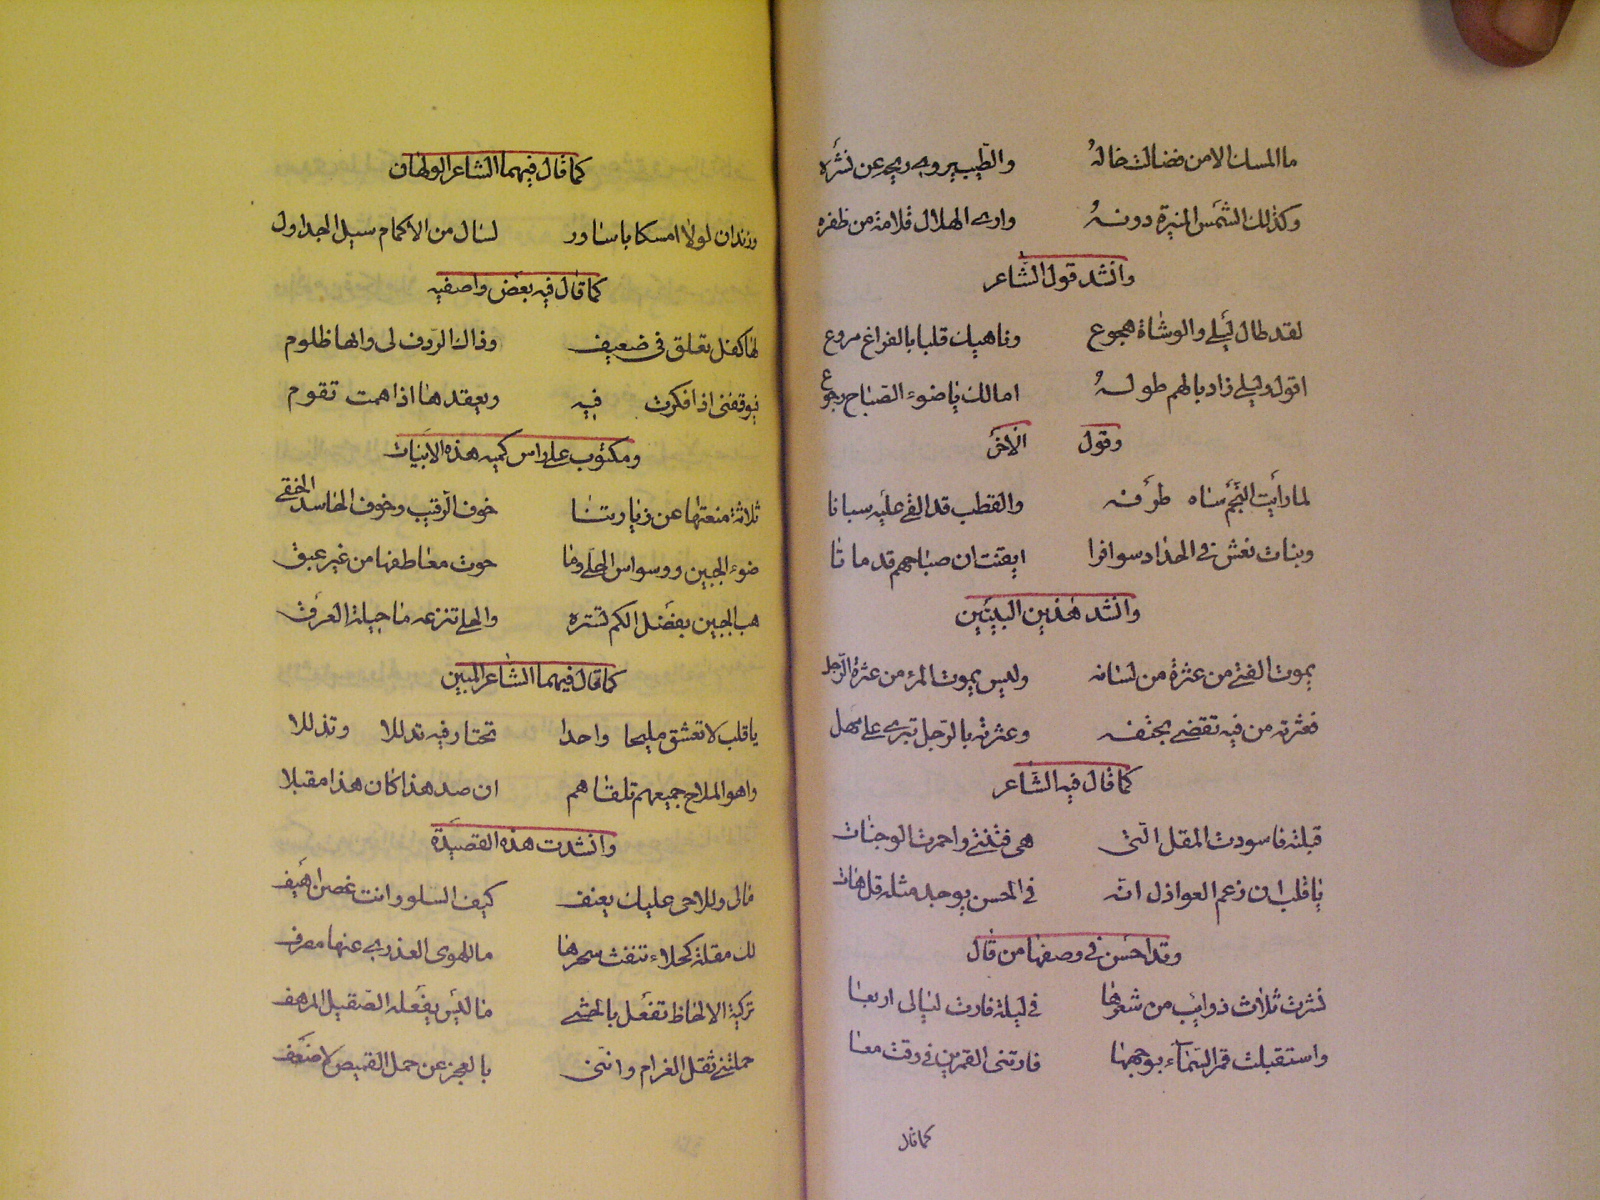 ما المسك الا من فضالة خاله والطيب يروي ريحه عن نشره
وكذلك الشمس المنيرة دونه وارى الهلال قلامة من ظفره
وانشد قول الشاعر
لقد طال ليلي والوشاة هجوع وناهيك قلبا بالفراغ مروع
اقول وليلي زاد بالهم طوله امالك يا ضوء الصباح رجوع
وقول الاخر
لما رأيت النجم ساه طرفه والقطب قد القى عليه سباتا
وبنات نعش في الحداد سوافرا ايقنت ان صباحهم قد ماتا
وانشد هذين البيتين
يموت الفتى من عثرة من لسانه وليس يموت المرء من عثرة الرجل
فعثرته من فيه تقضي بحتفه وعثرته بالرجل تبرى على مهل
كما قال فيه الشاعر
قبلته فاسودت المقل التي هي فتنتي واحمرت الوجنات
يا قلب ان زعم العواذل انه في الحسن يوجد مثله قل هات
وقد احسن في وصفها من قال
نشرت ثلاث ذوايب من شعرها في ليلة فارت ليالي اربعا
واستقبلت قمر السماء بوجهها فارتني القمرين في وقت معا
كما قال
كما قال فيهما الشاعر الولهان
وزندان لولا امسكا باساور لسال من الاكمام سيل الجداول
كما قال فيه بعض واصفيه
لها كفل تعلق في ضعيف وذاك الردف لي ولها ظلوم
فيوقفني اذا فكرت فيه ويعقدها اذا همت تقوم
ومكتوب على راس كميه هذه الابيات
ثلاثة منعتها عن زيارتنا خوف الرقيب وخوف الحاسد الحنقي
ضوء الجبين ووسواس الحلي وما حوت معاطفها من غير عبق
هب الجبين بفضل الكم تستره والحلي تنزعه ما حيلة العرق
كما قال فيهما الشاعر المبين
يا قلب لا تعشق مليحا واحدا تحتار فيه تدللا وتذللا
واهو الملاح جميعهم تلقاهم ان صد هذا كان هذا مقبلا
وانشدت هذه القصيدة
مالي وللاحي عليك يعنف كيف السلو وانت غصن اهيف
لك مقلة كحلاء تنفث سحرها ما للهوى العذري عنها مصرف
تركية الالحاظ تفعل بالحشى ما ليس يفعله الصقيل المرهف
حملتني ثقل الغرام وانني بالعجز عن حمل القميص لاضعف